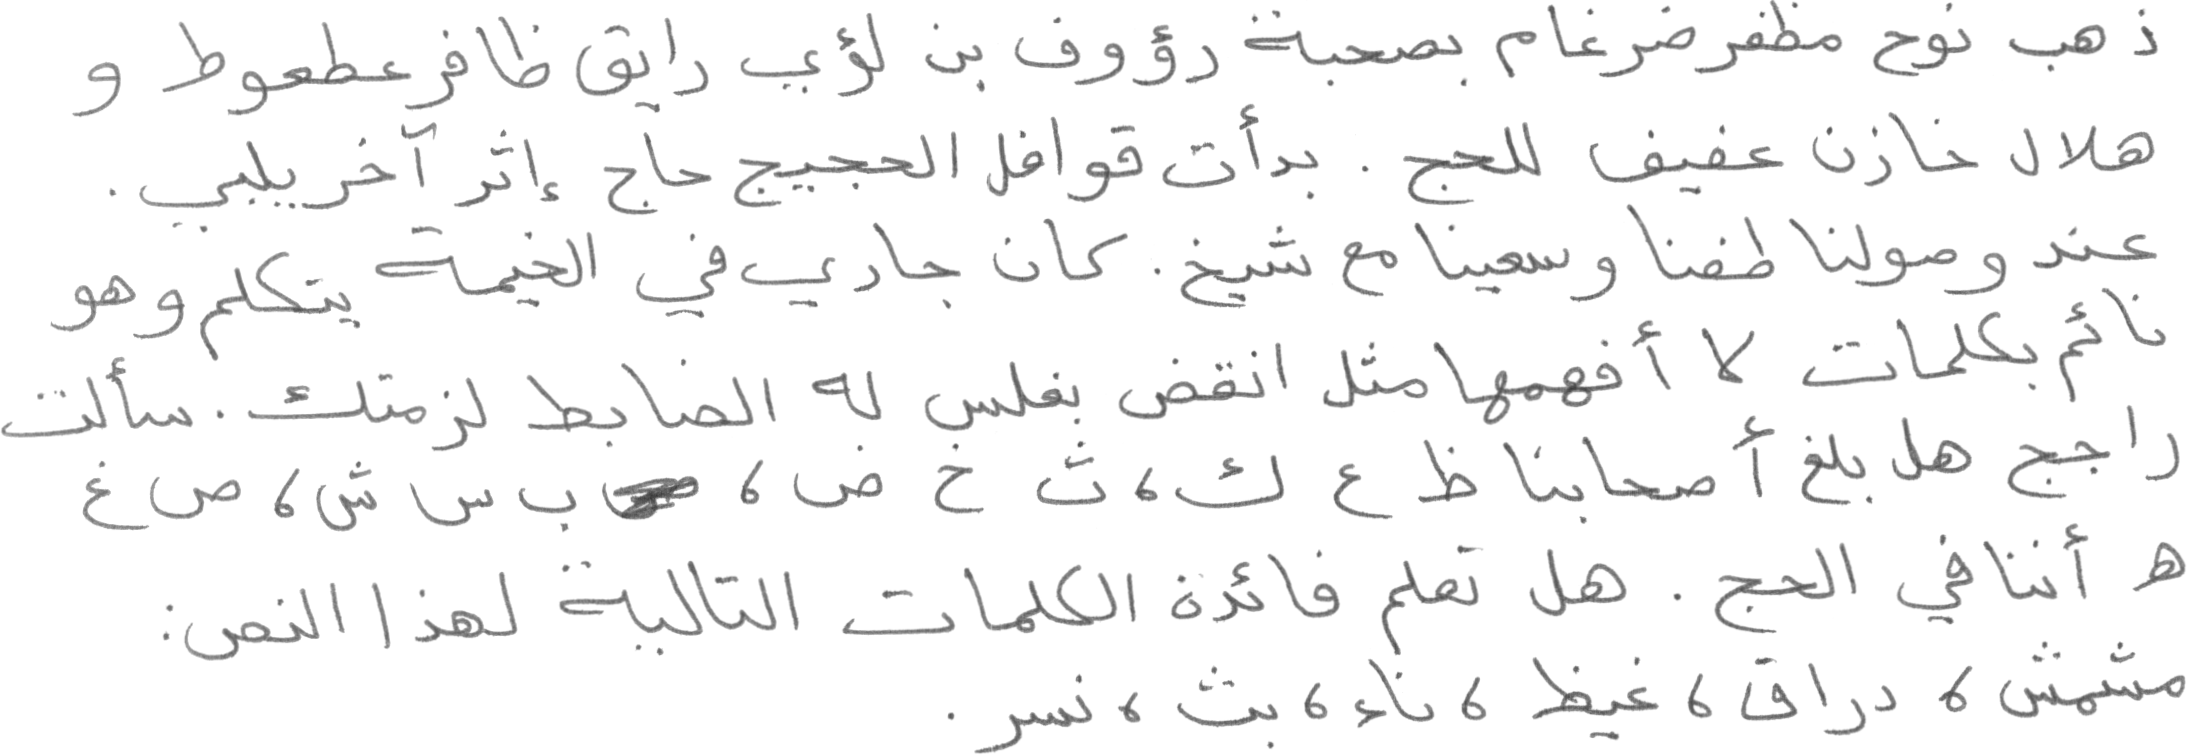 ذهب نوح مظفر ضرغام بصحبة رؤوف بن لؤي رايق ظافر عطعوط و
هلال خازن عفيف للحج . بدأت قوافل الحجيج حاج إثر آخر يلبي .
عند وصولنا طفنا وسعينا مع شيخ . كان جاري في الخيمة يتكلم وهو
نائم بكلمات لا أفهمها مثل انقض بغلس له الضابط لزمتك . سألت
راجح هل بلغ أصحابنا ظ ع ك ، ث خ ض ، ب س ش ، ص غ
ه أننا في الحج . هل تعلم فائدة الكلمات التالية لهذا النص :
مشمش ، دراق ، غيظ ، ناء ، بث ، نسر .